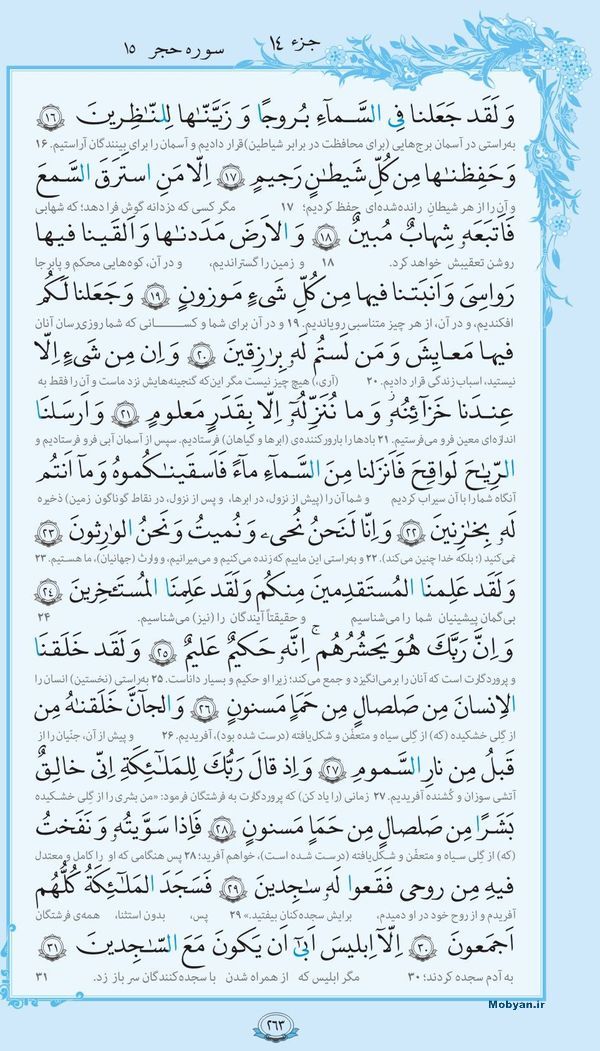 سوره حجر ۱۵
جزء ۱۴
وَ لَقَد جَعَلنا فِی السَّـمآءِ بُـروجًا وَ زَیَّنّـٰها لِلنّـٰظِرینَ ١٦
به‌راستی در آسمان برج‌هایی (برای محافظت در برابر شیاطین)قرار دادیم و آسمان را برای بینندگان آراستیم. ۱۶
وَ حَفِظنـٰها مِن کُلِّ شَیطـٰنٍ رَجیمٍ ١٧ اِلّا مَنِ استَرَقَ السَّمعَ
و آن را از هر شیطانِ رانده‌شده‌ای حفظ کردیم؛ ۱۷ مگر کسی که دزدانه گوش فرا دهد؛ که شهابی
فَاَتبَعَهٗ شِهابٌ مُبینٌ ١٨ وَ الاَرضَ مَدَدنـٰها وَ اَلقَینا فیها
روشن تعقیبش خواهد کرد. ۱۸ و زمین را گستراندیم، و در آن، کوه‌هایی محکم و پابرجا
رَواسِیَ وَ اَنبَتنا فیها مِن کُلِّ شَیءٍ مَوزونٍ ١٩ وَ جَعَلنا لَکُم
افکندیم، و در آن، از هر چیز متناسبی رویاندیم. ۱۹ و در آن برای شما و کسانی که شما روزی‌رسان آنان
فیها مَعایِشَ وَ مَن لَستُم لَهٗ بِرٰزِقینَ ٢٠ وَ اِن مِن شَیءٍ اِلّا
نیستید، اسباب زندگی قرار دادیم. ۲۰ (آری،) هیچ چیز نیست مگر این‌که گنجینه‌هایش نزد ماست و آن را فقط به
عِندَنا خَزآئِنُهٗ وَ ما نُنَزِّلُهٗ اِلّا بِقَدَرٍ مَعلومٍ ٢١ وَ اَرسَلنَا
اندازه‌ای معین فرو می‌فرستیم. ۲۱ بادها را بارورکننده‌ی (ابرها و گیاهان) فرستادیم. سپس از آسمان آبی فرو فرستادیم و
الرِّیٰحَ لَواقِحَ فَاَنزَلنا مِنَ السَّمآءِ مآءً فَاَسقَینـٰکُموهُ وَ ما اَنتُم
آنگاه شما را با آن سیراب کردیم و شما آن را (پیش از نزول، در ابرها، و پس از نزول، در نقاط گوناگون زمین) ذخیره
لَهٗ بِخٰزِنینَ ٢٢ وَ اِنّا لَنَحنُ نُحیٖ وَ نُمیتُ وَ نَحنُ الوٰرِثونَ ٢٣
نمی‌کنید (؛ بلکه خدا چنین می‌کند). ۲۲ و به‌راستی این ماییم که زنده می‌کنیم و می‌میرانیم، و وارث (جهانیان)، ما هستیم. ۲۳
وَ لَقَد عَلِمنَا المُستَقدِمینَ مِنکُم وَ لَقَد عَلِمنَا المُستَـٔخِرینَ ٢٤
بی‌گمان پیشینیان شما را می‌شناسیم و حقیقتاً آیندگان را (نیز) می‌شناسیم. ۲۴
وَ اِنَّ رَبَّکَ هُوَ یَحشُرُهُم ۚ اِنَّهٗ حَکیمٌ عَلیمٌ ٢٥ وَ لَقَد خَلَقنَا
و پروردگارت است که آنان را برمی‌انگیزد و جمع می‌کند؛ زیرا او حکیم و بسیار داناست. ۲۵ به‌راستی (نخستین) انسان را
الاِنسانَ مِن صَلصالٍ مِن حَمَاٍ مَسنونٍ ٢٦ وَ الجآنَّ خَلَقنٰهُ مِن
از گِلی خشکیده (که) از گِلی سیاه و متعفّن و شکل‌یافته (درست شده بود)، آفریدیم. ۲۶ و پیش از آن، جنّیان را از
قَبلُ مِن نارِ السَّمومِ ٢٧ وَ اِذ قالَ رَبُّکَ لِلمَلـٰٓئِکَةِ اِنّی خالِقٌ
آتشی سوزان و کُشنده آفریدیم. ۲۷ زمانی (را یاد کن) که پروردگارت به فرشتگان فرمود: «من بشری را از گِلی خشکیده
بَشَرًا مِن صَلصالٍ مِن حَمَاٍ مَسنونٍ ٢٨ فَاِذا سَوَّیتُهٗ وَ نَفَختُ
(که) از گِلی سیاه و متعفّن و شکل‌یافته (درست شده است)، خواهم آفرید؛ ۲۸ پس هنگامی که او را کامل و معتدل
فیهِ مِن روحی فَقَعوا لَهٗ سٰجِدینَ ٢٩ فَسَجَدَ المَلـٰٓئِکَةُ کُلُّهُم
آفریدم و از روح خود در او دمیدم، برایش سجده‌کنان بیفتید.» ۲۹ پس، بدون استثنا، همه‌ی فرشتگان
اَجمَعونَ ٣٠ اِلّآ اِبلیسَ اَبیٰٓ اَن یَکونَ مَعَ السّٰجِدینَ ٣١
به آدم سجده کردند؛ ۳۰ مگر ابلیس که از همراه شدن با سجده‌کنندگان سر باز زد. ۳۱
۲۶۳
Mobyan.ir